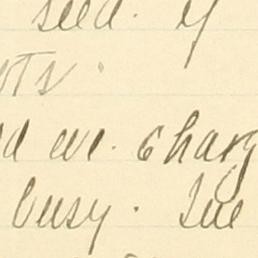 seed. if
ots.
d we. charg
busy. Sue